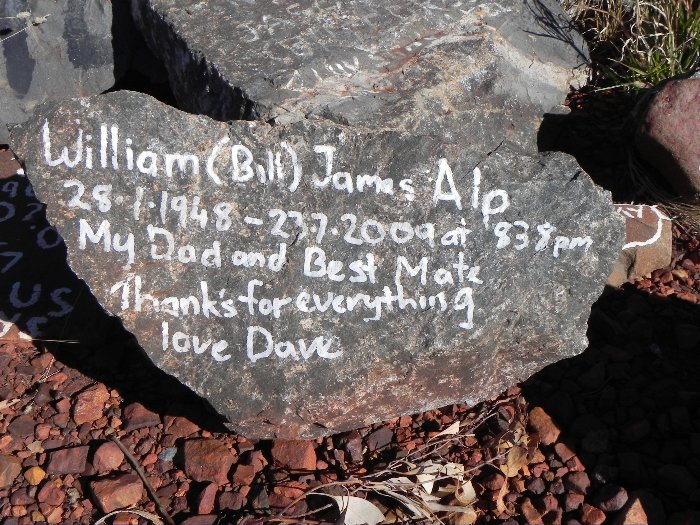 William (Bill) James Alp
28.1.1948 - 27.7.2009 at 838pm
My Dad and Best Mate
Thank's for everything
love Dave
US